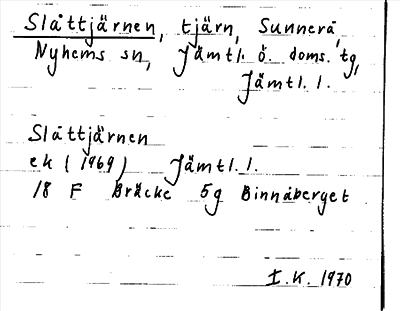 Slåttjärnen, tjärn, Sunnerå,
Nyhems sn, Jämtl. ö. doms. tg,
Jämtl. l.
Slåttjärnen
ek (1969) Jämtl. l.
18 F Bräcke 5g Binnåberget
I.K. 1970